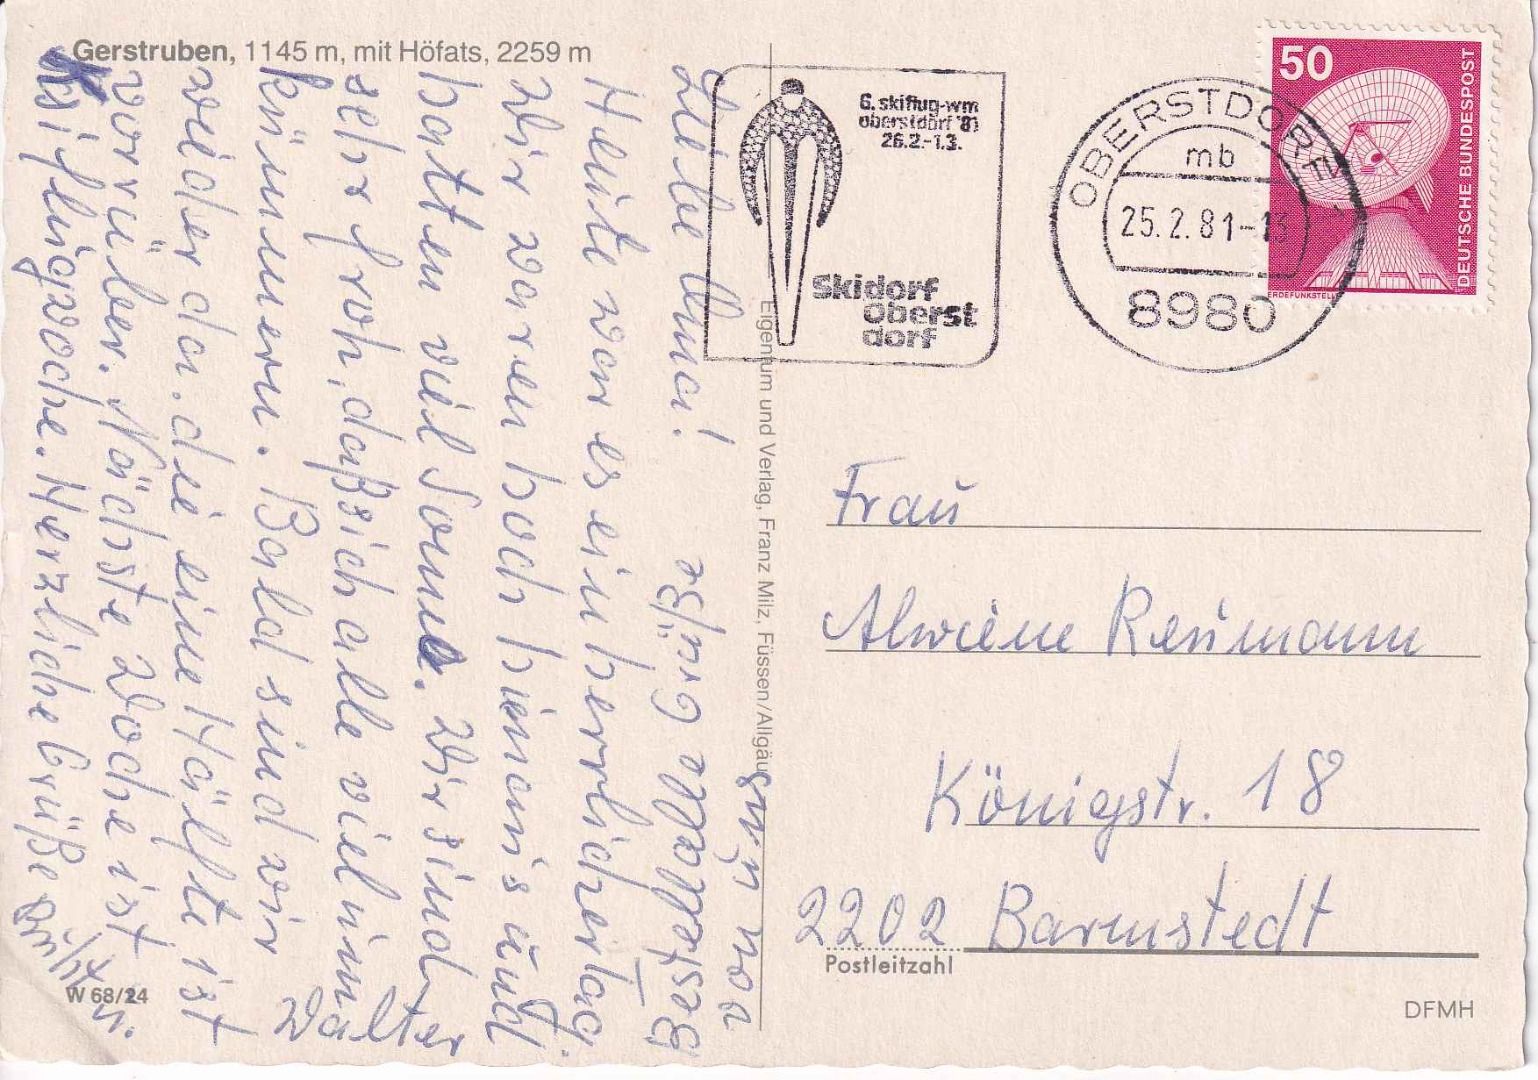 Gerstruben, 1145 m, mit Höfats, 2259 m
Liebe Oma!
Heute war es ein herrlicher Tag.
Wir waren hoch hienaus und
hatten viel Sonne. Wir sind
sehr froh, daß sich alle viel um
kümmern. Bald sind wir
wieder da. die eine Hälfte ist
vorrüber. Nächste Woche ist
Skiflugwoche. Herzliche Grüße
u.
Walter
Bestell alle Grüße
von uns
W 68/24
Eigentum und Verlag, Franz Milz, Füssen/Allgäu
6. skiflug-wm
oberstdorf '81
26.2.-1.3.
Skidorf
Oberst
dorf
OBERSTDORF
mb
25.2.81-13
8980
50
DEUTSCHE BUNDESPOST
ERDEFUNKSTELLE
Frau
Alwiene Reumann
Königstr. 18
2202 Barmstedt
Postleitzahl
DFMH